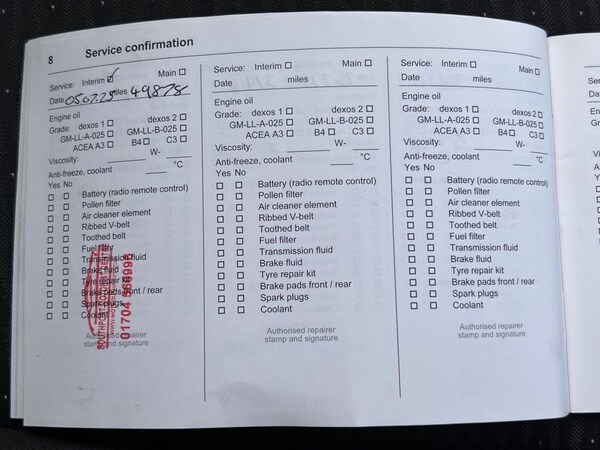 8 Service confirmation
Service: Interim ☑ Main ☐
Date 05.07.23 miles 49878
Engine oil
Grade: dexos 1 ☐ dexos 2 ☐
GM-LL-A-025 ☐ GM-LL-B-025 ☐
ACEA A3 ☐ B4 ☐ C3 ☐
Viscosity: ______ W- ______
Anti-freeze, coolant ____ °C
Yes No
☐ ☐ Battery (radio remote control)
☐ ☐ Pollen filter
☐ ☐ Air cleaner element
☐ ☐ Ribbed V-belt
☐ ☐ Toothed belt
☐ ☐ Fuel filter
☐ ☐ Transmission fluid
☐ ☐ Brake fluid
☐ ☐ Tyre repair kit
☐ ☐ Brake pads front / rear
☐ ☐ Spark plugs
☐ ☐ Coolant
Authorised repairer
stamp and signature
SOUTHPORT
01704
Service: Interim ☐ Main ☐
Date miles
Engine oil
Grade: dexos 1 ☐ dexos 2 ☐
GM-LL-A-025 ☐ GM-LL-B-025 ☐
ACEA A3 ☐ B4 ☐ C3 ☐
Viscosity: ______ W- ______
Anti-freeze, coolant ____ °C
Yes No
☐ ☐ Battery (radio remote control)
☐ ☐ Pollen filter
☐ ☐ Air cleaner element
☐ ☐ Ribbed V-belt
☐ ☐ Toothed belt
☐ ☐ Fuel filter
☐ ☐ Transmission fluid
☐ ☐ Brake fluid
☐ ☐ Tyre repair kit
☐ ☐ Brake pads front / rear
☐ ☐ Spark plugs
☐ ☐ Coolant
Authorised repairer
stamp and signature
Service: Interim ☐ Main ☐
Date miles
Engine oil
Grade: dexos 1 ☐ dexos 2 ☐
GM-LL-A-025 ☐ GM-LL-B-025 ☐
ACEA A3 ☐ B4 ☐ C3 ☐
Viscosity: ______ W- ______
Anti-freeze, coolant ____ °C
Yes No
☐ ☐ Battery (radio remote control)
☐ ☐ Pollen filter
☐ ☐ Air cleaner element
☐ ☐ Ribbed V-belt
☐ ☐ Toothed belt
☐ ☐ Fuel filter
☐ ☐ Transmission fluid
☐ ☐ Brake fluid
☐ ☐ Tyre repair kit
☐ ☐ Brake pads front / rear
☐ ☐ Spark plugs
☐ ☐ Coolant
Authorised repairer
stamp and signature